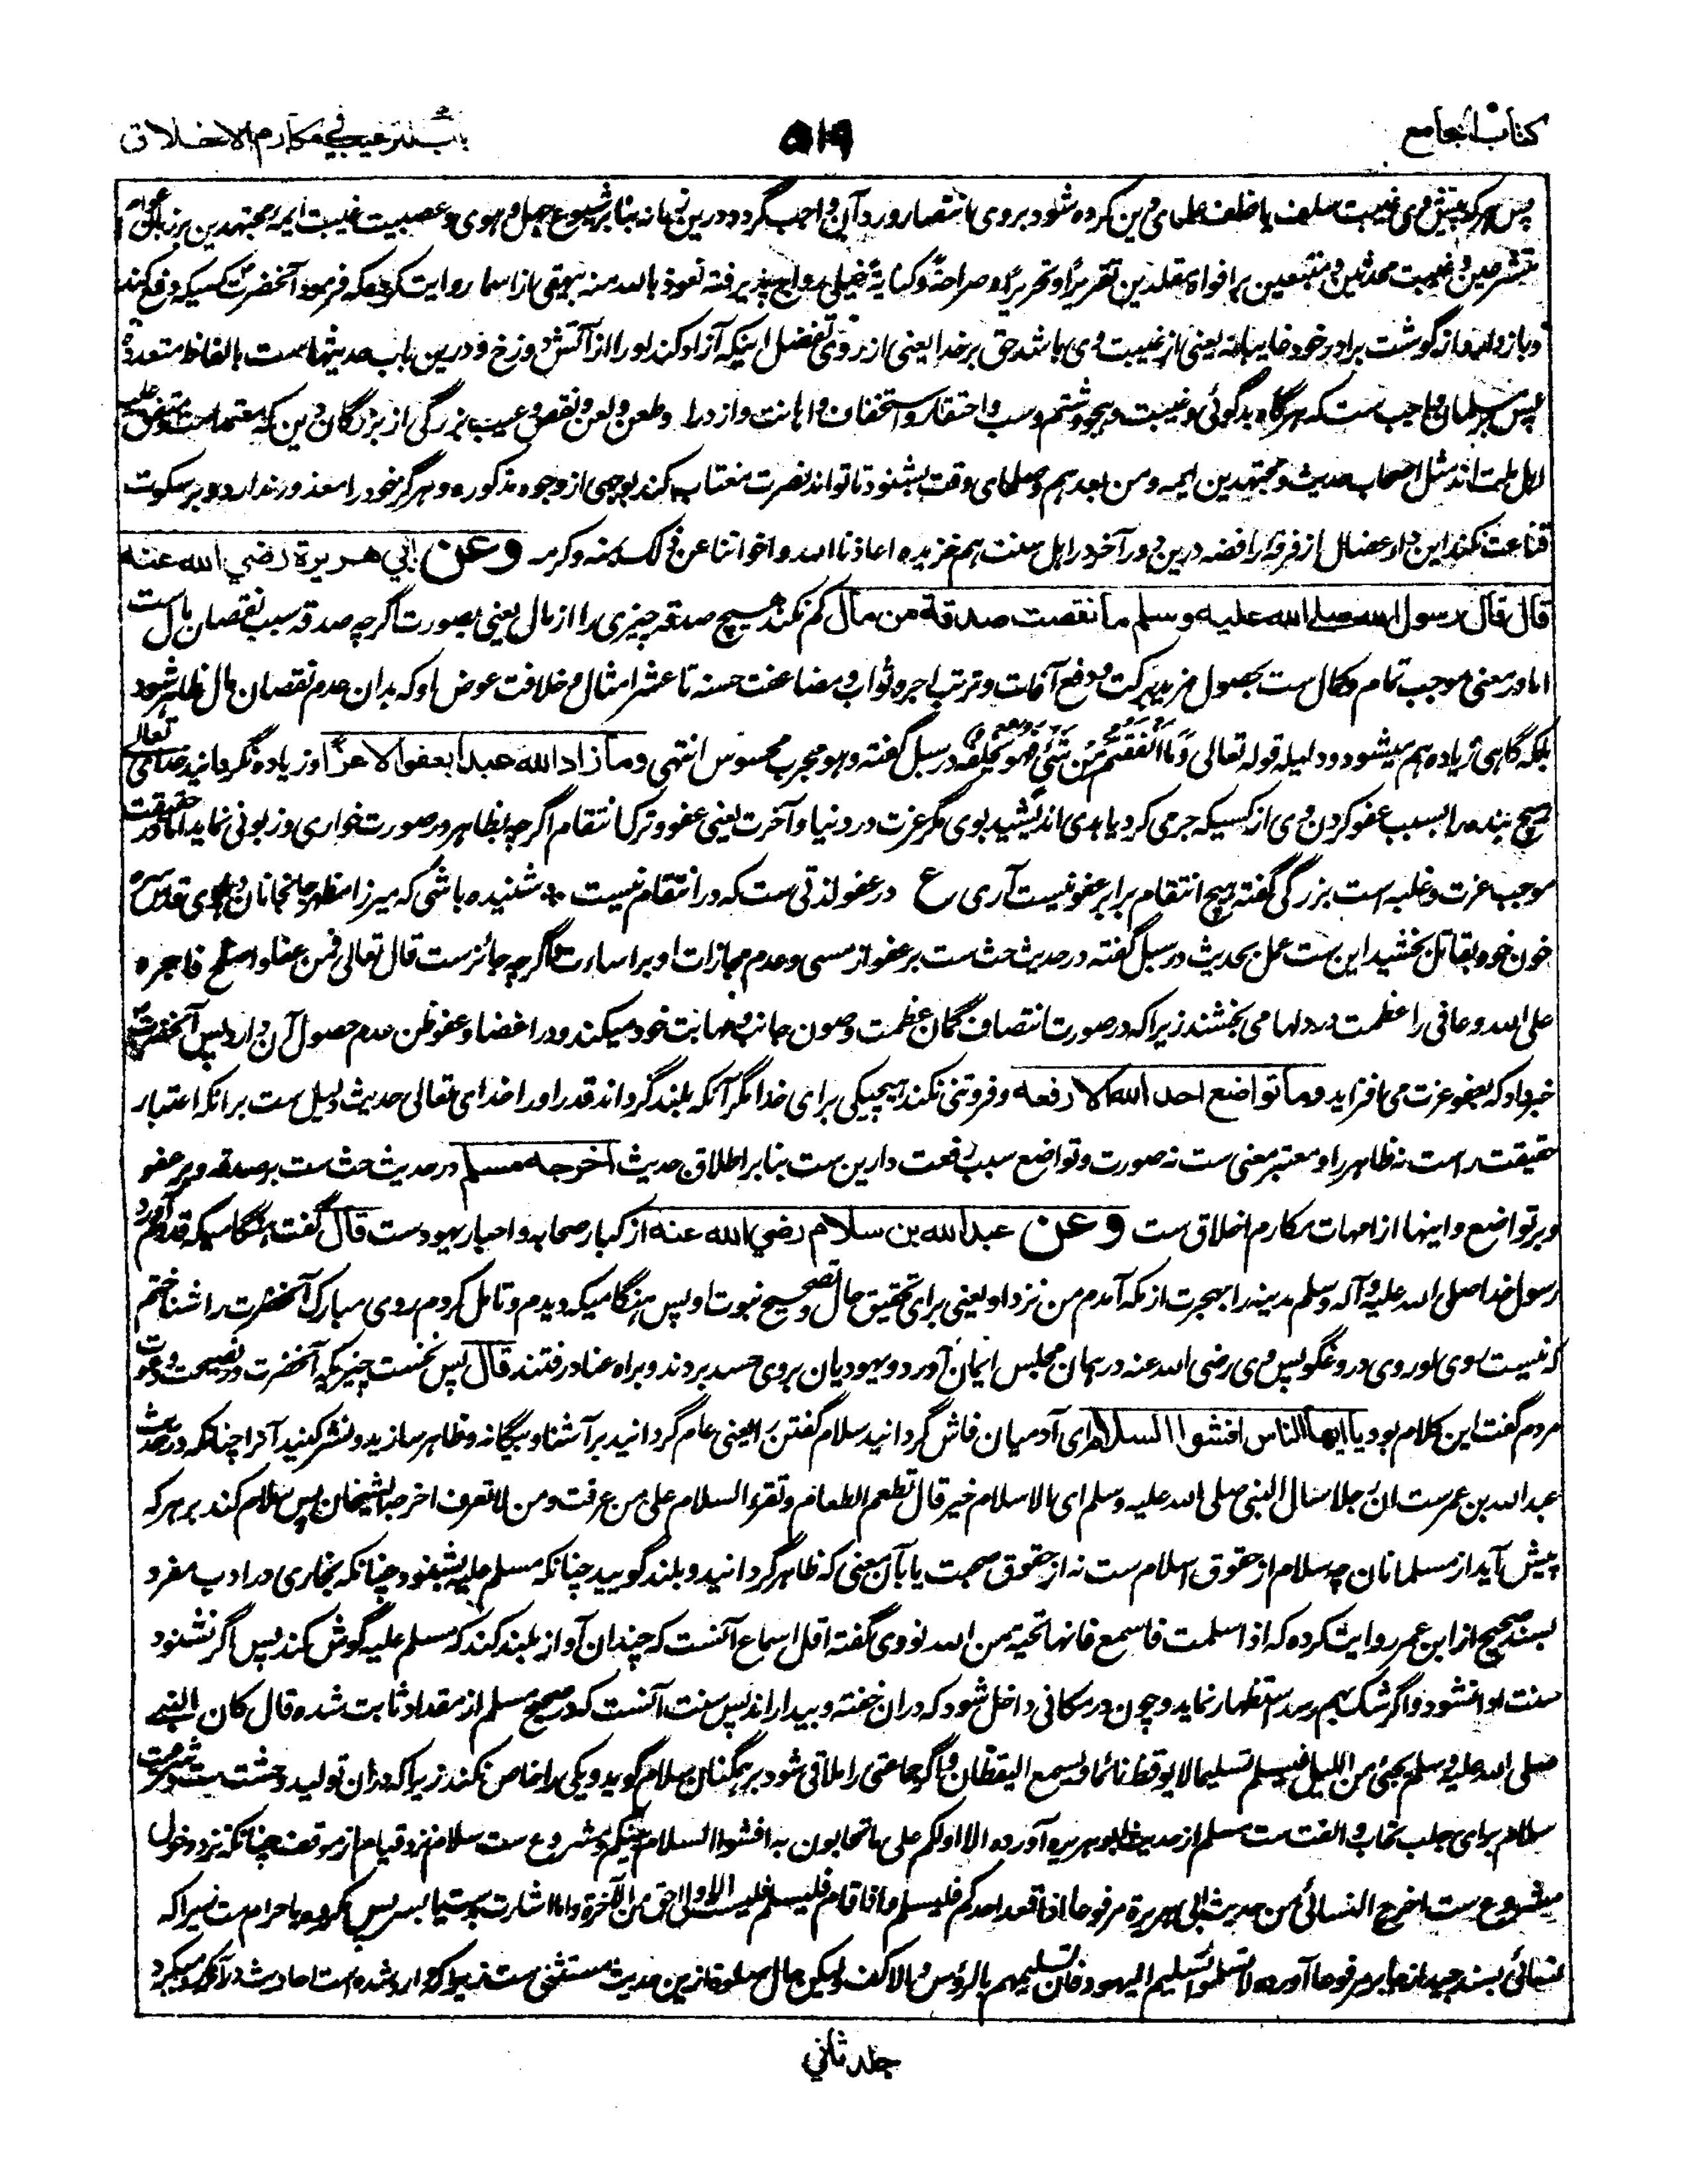 کتاب الجامع
۵۱۹
باب الترغیب فی مکارم الاخلاق
پس هرکه پیش وی غیبت سلف یا خلف علمای دین کرده شود بروی انتصار ورد آن واجب گردد درین زمانه بنابر شیوع جهل و هوی و عصبیت غیبت ایمه مجتهدین بر زبان عوام
متشرعین و غیبت محدثین و متبعین بر افواه مقلدین تقریرًا و تحریرًا و صراحةً و کنایةً خیلی رواج پذیرفته نعوذ بالله منه بیهقی از اسما روایت کرده که فرمود آنحضرت کسیکه دفع کند
و باز دارد از گوشت برادر خود غایبانه یعنی از غیبت وی باشد حق بر خدا یعنی از روی تفضل اینکه آزاد کند او را از آتش دوزخ و درین باب حدیثهاست بالفاظ متعدده
پس بر مسلمان واجب ست که هرگاه بدگوئی و غیبت و هجو و شتم و سب و احتقار و استخفاف و اهانت و ازدرا و طعن و لعن و نقص و عیب بزرگی از بزرگان دین که معتمد است و متفق علیه
اهل ملت اند مثل اصحاب حدیث و مجتهدین ایمه و من بعدهم و صلحای وقت بشنود تا تواند نصرت مغتاب کند بوجهی از وجوه مذکوره و هرگز خود را معذور ندارد و بر سکوت
قناعت نکند این داء عضال از فرقه رافضه درین دور آخر در اهل سنت هم خزیده اعاذنا الله و اخواننا عن ذلک بمنه و کرمه وعن ابي هريرة رضي الله عنه
قال قال رسول الله صلى الله عليه وسلم ما نقصت صدقة من مال کم نکند هیچ صدقه چیزی را از مال یعنی بصورت اگرچه صدقه سبب نقصان مال ست
اما در معنی موجب تمام و کمال ست بحصول مزید برکت و دفع آفات و ترتب اجر و ثواب و مضاعفت حسنه تا عشر امثال و خلافت عوض او که بدان عدم نقصان مال ظاهر شود
بلکه گاهی زیاده هم میشود و دلیله قوله تعالی وَمَا أَنفَقْتُم مِّن شَيْءٍ فَهُوَ يُخْلِفُهُ در سبل گفته و هو مجرب محسوس انتهی وما زاد الله عبدا بعفو الا عزًا و زیاده نگرداند خدای تعالی
هیچ بنده را بسبب عفو کردن وی از کسیکه جرمی کرد یا بدی اندیشید بوی مگر عزت در دنیا و آخرت یعنی عفو و ترک انتقام اگرچه بظاهر در صورت خواری و زبونی نماید اما در حقیقت
موجب عزت و غلبه است بزرگی گفته هیچ انتقام برابر عفو نیست آری ع در عفو لذتی ست که در انتقام نیست * شنیده باشی که میرزا مظهر جانجانان دهلوی قدس سره
خون خود بقاتل بخشید این ست عمل بحدیث در سبل گفته در حدیث حث ست بر عفو از مسی و عدم مجازات او بر اساءت اگرچه جائزست قال تعالی فمن عفا و اصلح فاجره
علی الله و عافی را عظمت در دلها می بخشند زیرا که در صورت انتصاف گمان عظمت وصون جانب و مهابت خود میکند و در اغضا و عفو ظن عدم حصول آن دارد پس آنحضرت
خبر داد که بعفو عزت می افزاید وما تواضع احد لله الا رفعه و فروتنی نکند هیچ یکی برای خدا مگر آنکه بلند گرداند قدر او را خدای تعالی حدیث دلیل ست بر آنکه اعتبار
حقیقت راست نه ظاهر را و معتبر معنی ست نه صورت و تواضع سبب رفعت دارین ست بنابر اطلاق حدیث اخرجه مسلم در حدیث حث ست بر صدقه و بر عفو
و بر تواضع و اینها از امهات مکارم اخلاق ست وعن عبدالله بن سلام رضي الله عنه از کبار صحابه و احبار یهود ست قال گفت هنگامیکه قدوم آورد
رسول خدا صلی الله علیه و آله و سلم مدینه را بهجرت از مکه آمدم من نزد او یعنی برای تحقیق حال و تصحیح نبوت او پس هنگامیکه دیدم و تامل کردم روی مبارک آنحضرت را شناختم
که نیست روی او روی دروغگو پس وی رضی الله عنه در همان مجلس ایمان آورد و یهودیان بروی حسد بردند و براه عناد رفتند قال پس نخست چیزیکه آنحضرت در نصیحت و دعوت
مردم گفت این کلام بود یا ایها الناس افشوا السلام ای آدمیان فاش گردانید سلام گفتن را یعنی عام گردانید بر آشنا و بیگانه و ظاهر سازید و نشر کنید آنرا چنانکه در حدیث
عبد الله بن عمرست ان رجلا سال النبی صلی الله علیه وسلم ای الاسلام خیر قال تطعم الطعام و تقرء السلام علی من عرفت و من لا تعرف اخرجه الشیخان پس سلام کند بر هر که
پیش آید از مسلمانان چه سلام از حقوق اسلام ست نه از حقوق صحبت یا بآن معنی که ظاهر گردانید و بلند گویید چنانکه مسلم علیه بشنود چنانکه بخاری در ادب مفرد
بسند صحیح از ابن عمر روایت کرده که اذا سلمت فاسمع فانها تحیة من الله نووی گفته اقل اسماع آنست که چندان آواز بلند کند که مسلم علیه گوش کند پس اگر نشنود
سنت ادا نشود و اگر شک بهم رسد استظهار نماید و چون در مکانی داخل شود که دران خفته و بیدار اند پس سنت آنست که در صحیح مسلم از مقداد ثابت شده قال کان النبی
صلی الله علیه وسلم یجئی من اللیل فیسلم تسلیما لا یوقظ نائما و یسمع الیقظان و اگر جماعتی را ملاقی شود بر همگنان سلام گوید و یکی را خاص نکند زیرا که دران تولید وحشت ست و مشروعیت
سلام برای جلب تحاب و الفت ست مسلم از حدیث ابو هریره آورده الا ادلکم علی ما تحابون به افشوا السلام بینکم و مشروع ست سلام نزد قیام از موقف چنانکه نزد دخول
مشروع ست اخرج النسائی من حدیث ابی هریرة مرفوعا اذا قعد احدکم فلیسلم و اذا قام فلیسلم فلیست الاولی احق من الآخرة و اما اشارت بدست یا بسر پس مکروه یا حرام ست زیرا که
نسائی بسند جید از جابر مرفوعا آورده لا تسلموا تسلیم الیهود فان تسلیمهم بالرؤس و الاکف و لیکن حال صلوة ازین حدیث مستثنی ست زیرا که وارد شده است احادیث
جلد ثانی